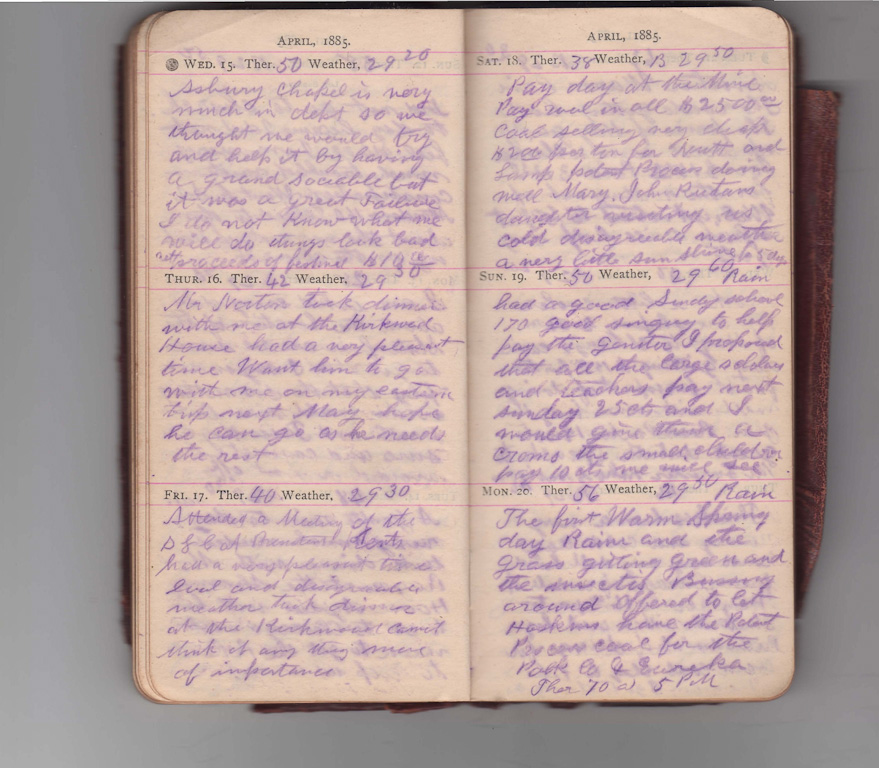 APRIL, 1885.
WED. 15. Ther. 50 Weather, 29 20
Asbury Chapel is very
much in debt so we
thought we would try
and help it by having
a grand sociable but
it was a great Failure
I do not Know what we
will do things look bad
proceeds of festival $19
THUR. 16. Ther. 42 Weather, 29 30
Mr Norton took dinner
with me at the Kirkwood
House had a very pleasant
time Want him to go
with me on my eastern
trip next May hope
he can go as he needs
the rest
FRI. 17. Ther. 40 Weather, 29 30
Attended a Meeting of the
had a very pleasant time
and disagreeable
weather took dinner
at the Kirkwood cannot
think of any thing more
of importance
APRIL, 1885.
SAT. 18. Ther. 38 Weather, 29 50
Pay day at the Mine
Pay roll in all $2500
Coal selling very cheap
per ton for nutt and
Lump doing
well Mary, John
daughter visiting us
cold disagreeable weather
a very little sun shine
SUN. 19. Ther. 50 Weather, 29 60 Rain
had a good Sundy school
170 good singing to help
pay the I proposed
that all the large scholars
and teachers pay next
sunday 25 cts and I
would give them a
cromo the small children
pay 10 cts we will see
MON. 20. Ther. 56 Weather, 29 50 Rain
The first Warm Spring
day Rain and the
Grass getting green and
the insects Bussing
around Offered to let
Hoskins have the Patent
Process coal for the
Polk Co & Eureka
Ther 70 at 5 P.M.